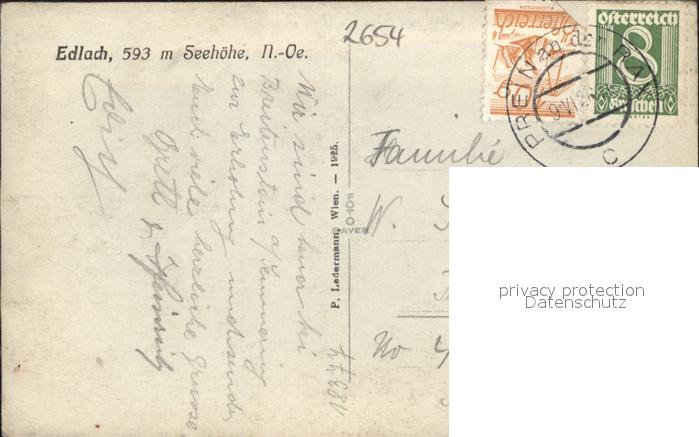 2654
Edlach, 593 m Seehöhe, N.-Oe.
österreich
österreich
8
Groschen
PREIN an der RAX
C
Wir sind hier bei
Breitenstein a/Semmering
zur Erholung und senden
Euch viele herzliche Grüsse
Gretl &
P. Ledermann, Wien. — 1925.
FOTO
BAYER
Familie
W.
No 4
privacy protection
Datenschutz